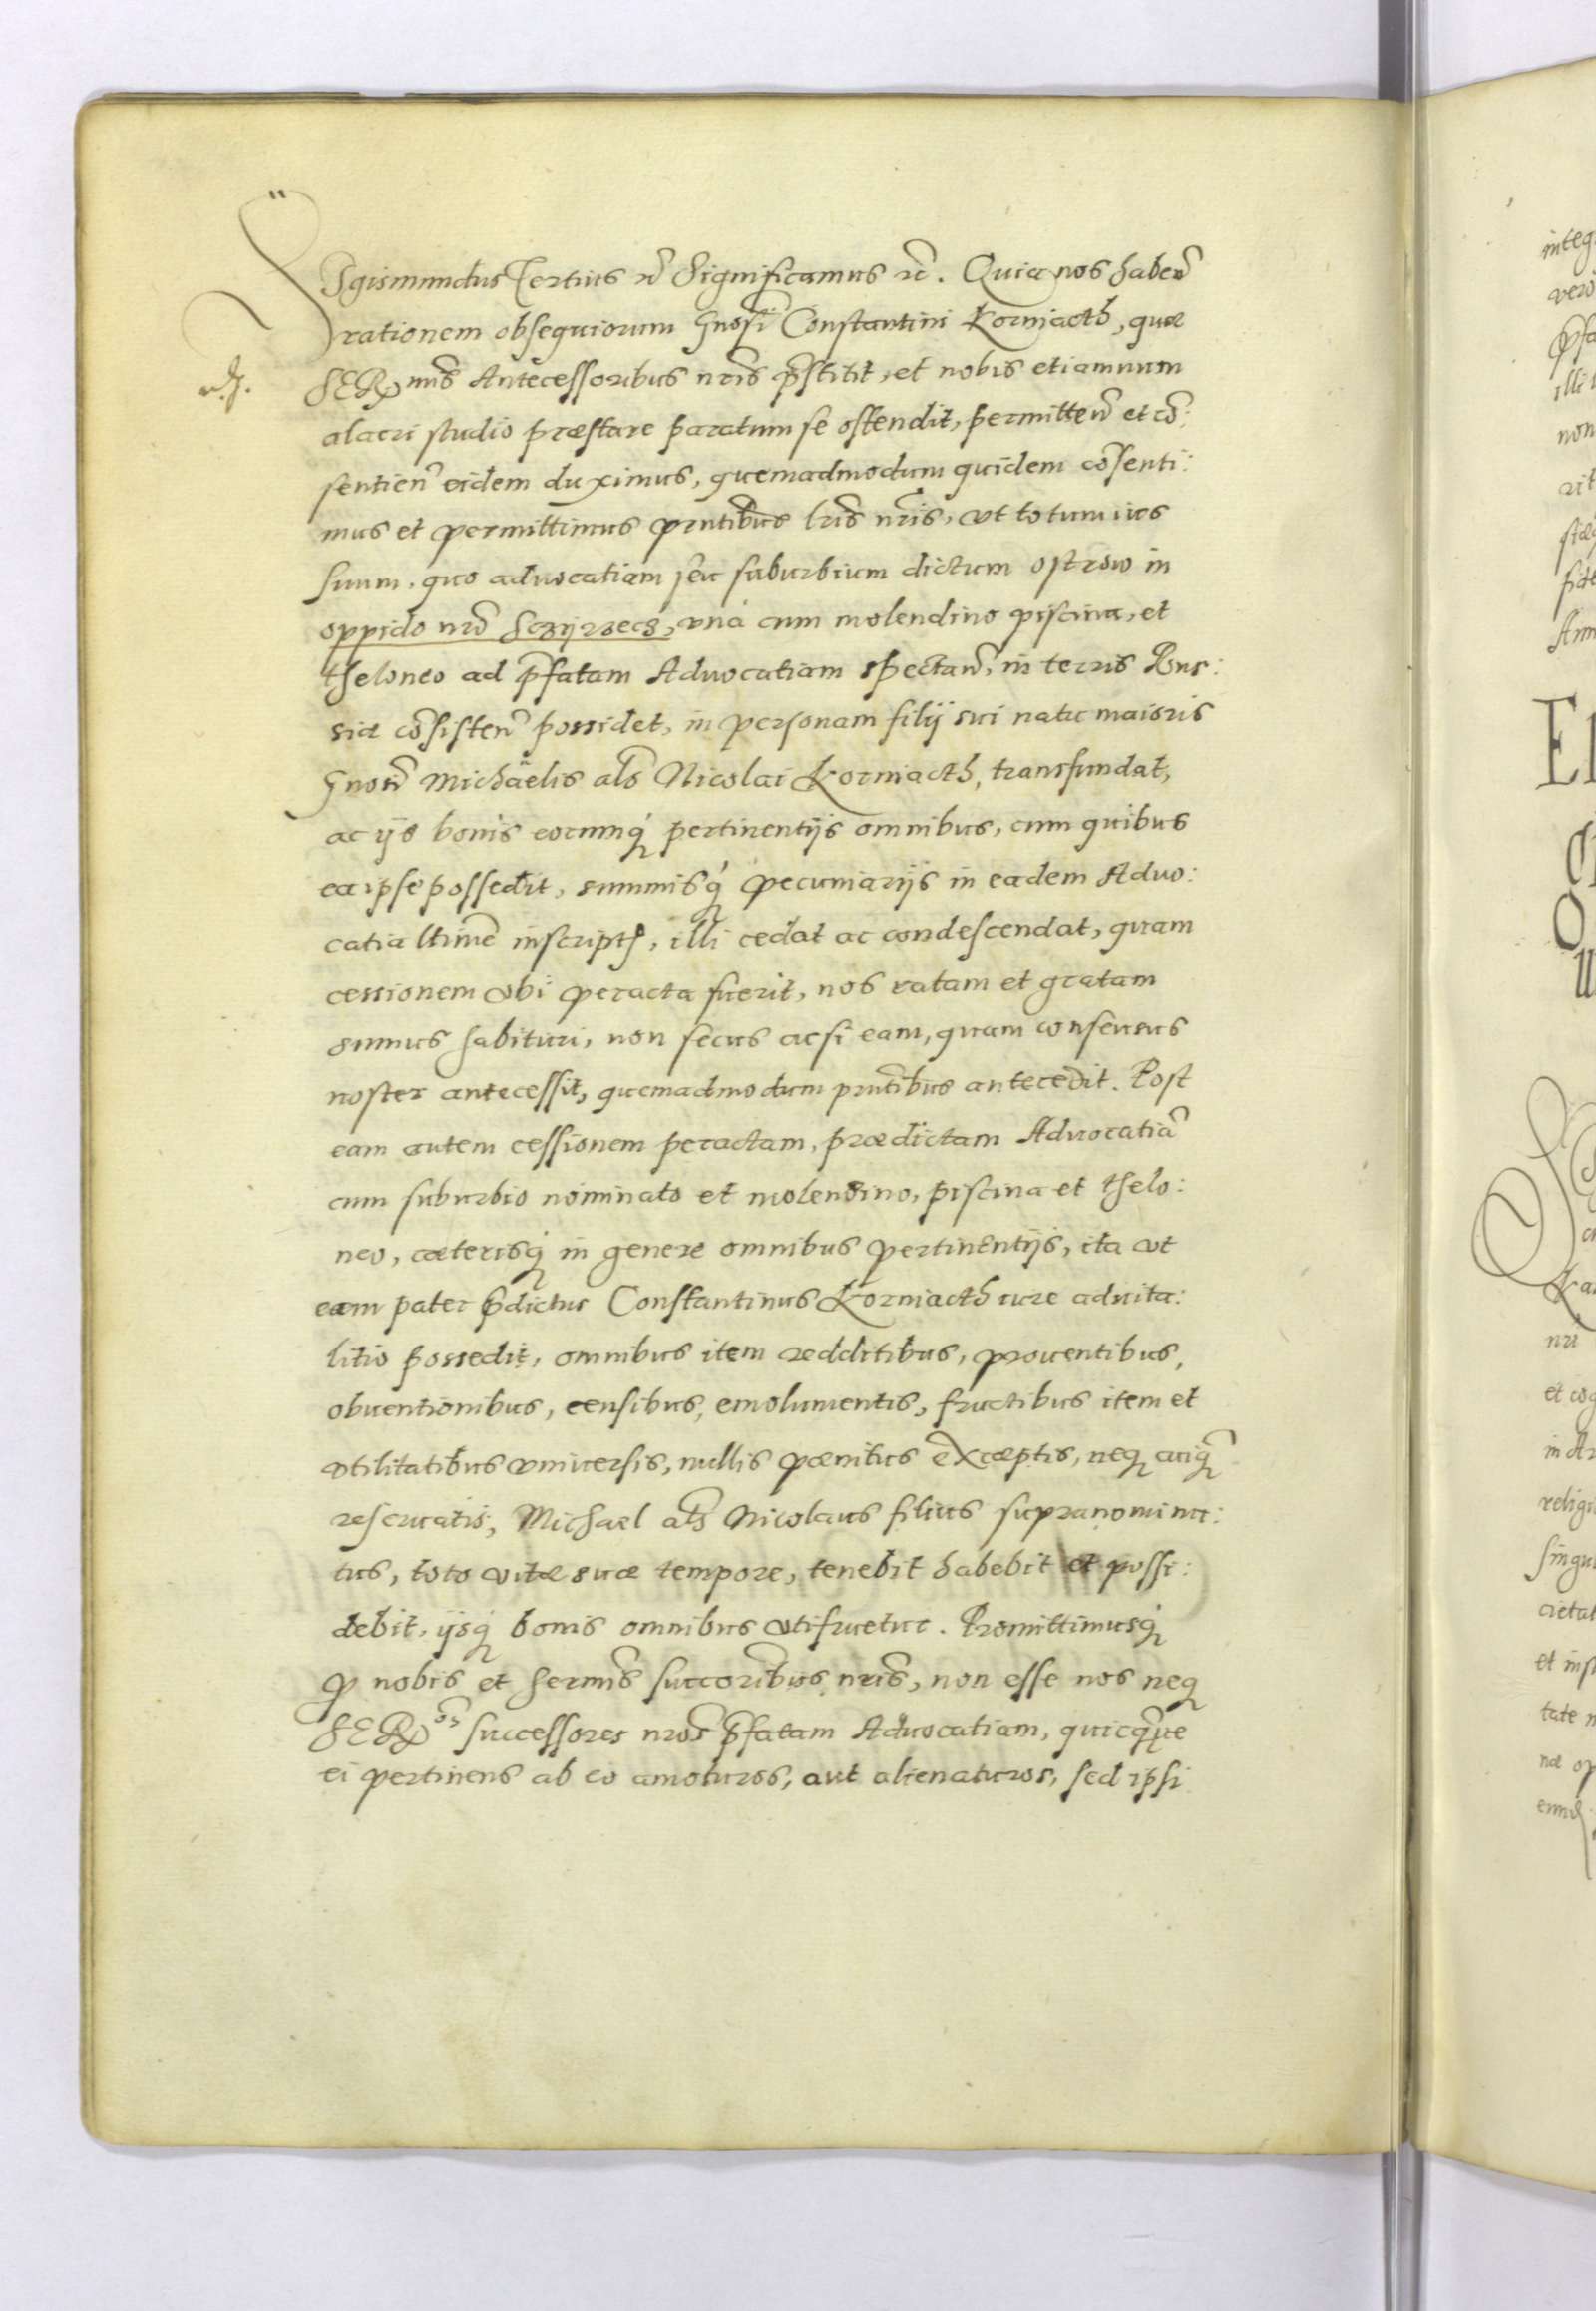 SIgismundus Tertius rc̃ Significamus rc̃. Quia nos haben̄
rationem obsequiorum Gnosi Constantini Korniacth, quæ
SERmis Antecessoribus nr̃is p̃stitit, et nobis etiamnum
alacri studio præstare paratum se ostendit, permitten̄ et cō:
sentien̄ eidem duximus, quemadmodum quidem cōsenti:
mus et permittimus pn̄tibus lr̃is nr̃is, vt totum ius
suum, quo aduocatiam seu suburbium dictum Ostrow in
oppido nr̃o Sczyrzecz, vnà cum molendino piscina, et
theloneo ad p̃fatam Aduocatiam spectan̄, in terris Rus:
siæ cōsisten̄ possidet, in personam filij sui natu maioris
Gnosi Michaëlis als Nicolai Korniacth, transfundat,
ac ijs bonis eorumq́ pertinentijs omnibus, cum quibus
ea ipse possedit, summisq́ pecuniarijs in eadem Aduo:
catia ltime inscript, illi cedat ac condescendat, quam
cessionem vbi peracta fuerit, nos ratam et gratam
sumus habituri, non secus ac si eam, quam consensus
noster antecessit, quemadmodum pn̄tibus antecedit. Post
eam autem cessionem peractam, prædictam Aduocatiā
cum suburbio nominato et molendino, piscina et thelo:
neo, cæterisq́ in genere omnibus pertinentijs, ita vt
eam pater p̃dictus Constantinus Korniacth iure aduita:
litio possedit, omnibus item redditibus, prouentibus,
obuentionibus, censibus, emolumentis, fructibus item et
vtilitatibus vniuersis, nullis pœnitus exceptis, neq cuiq̃
reseruatis, Michael als Nicolaus filius supranomina:
tus, toto vitæ suæ tempore, tenebit habebit et possi:
debit, ijsq́ bonis omnibus vtifruetur. Promittimusq́
p nobis et sermis succoribus nr̃is, non esse nos neq
SERmos successores nr̃os p̃fatam Aduocatiam, quicq̃ue
ei pertinens ab eo amoturos, aut alienaturos, sed ipsi